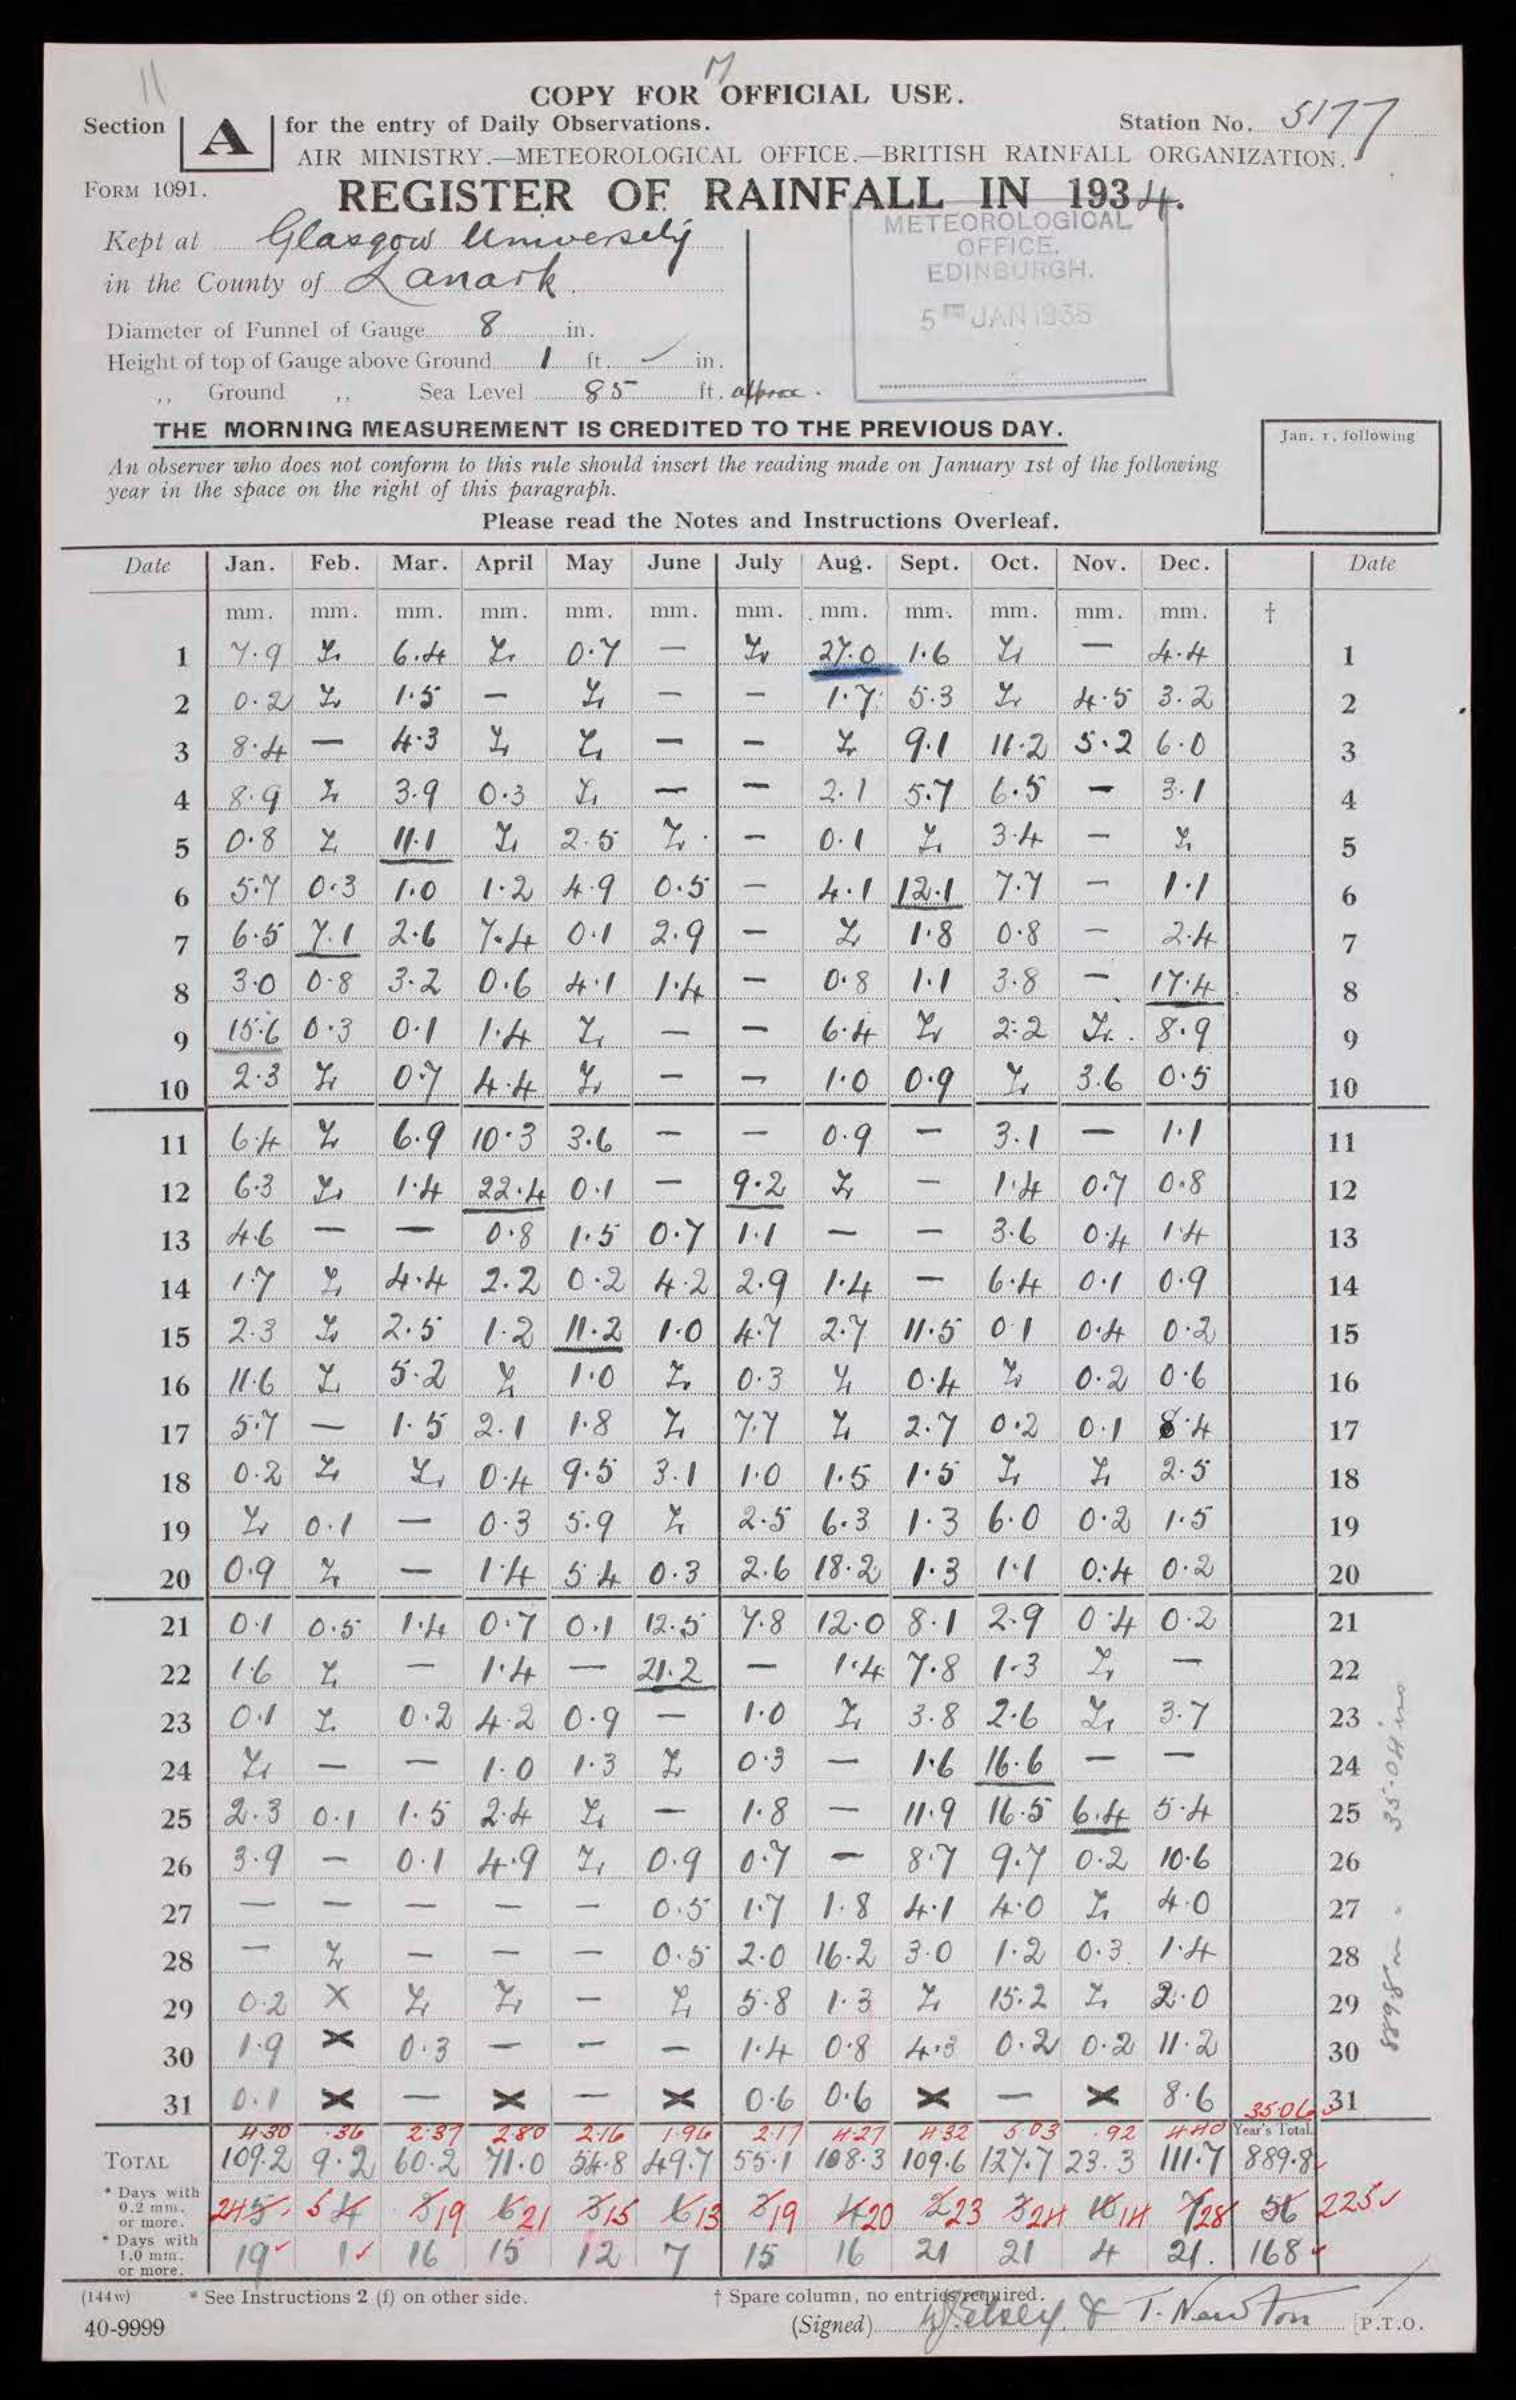 11
M
COPY FOR OFFICIAL USE.
Section A for the entry of Daily Observations. Station No. 5177
AIR MINISTRY.—METEOROLOGICAL OFFICE.—BRITISH RAINFALL ORGANIZATION.
FORM 1091.
REGISTER OF RAINFALL IN 1934.
Kept at Glasgow University
in the County of Lanark.
METEOROLOGICAL
OFFICE.
EDINBURGH.
5TH JAN 1935
Diameter of Funnel of Gauge 8 in.
Height of top of Gauge above Ground 1 ft. in.
,, Ground ,, Sea Level 85 ft. approx.
THE MORNING MEASUREMENT IS CREDITED TO THE PREVIOUS DAY.
An observer who does not conform to this rule should insert the reading made on January 1st of the following
year in the space on the right of this paragraph.
Jan. 1, following
Please read the Notes and Instructions Overleaf.
Date Jan. Feb. Mar. April May June July Aug. Sept. Oct. Nov. Dec. Date
mm. mm. mm. mm. mm. mm. mm. mm. mm. mm. mm. mm. †
1 7.9 Tr 6.4 Tr 0.7 — Tr 27.0 1.6 Tr — 4.4 1
2 0.2 Tr 1.5 — Tr — — 1.7 5.3 Tr 4.5 3.2 2
3 8.4 — 4.3 Tr Tr — — Tr 9.1 11.2 5.2 6.0 3
4 8.9 Tr 3.9 0.3 Tr — — 2.1 5.7 6.5 — 3.1 4
5 0.8 Tr 11.1 Tr 2.5 Tr — 0.1 Tr 3.4 — Tr 5
6 5.7 0.3 1.0 1.2 4.9 0.5 — 4.1 12.1 7.7 — 1.1 6
7 6.5 7.1 2.6 7.4 0.1 2.9 — Tr 1.8 0.8 — 2.4 7
8 3.0 0.8 3.2 0.6 4.1 1.4 — 0.8 1.1 3.8 — 17.4 8
9 15.6 0.3 0.1 1.4 Tr — — 6.4 Tr 2.2 Tr 8.9 9
10 2.3 Tr 0.7 4.4 Tr — — 1.0 0.9 Tr 3.6 0.5 10
11 6.4 Tr 6.9 10.3 3.6 — — 0.9 — 3.1 — 1.1 11
12 6.3 Tr 1.4 22.4 0.1 — 9.2 Tr — 1.4 0.7 0.8 12
13 4.6 — — 0.8 1.5 0.7 1.1 — — 3.6 0.4 1.4 13
14 1.7 Tr 4.4 2.2 0.2 4.2 2.9 1.4 — 6.4 0.1 0.9 14
15 2.3 Tr 2.5 1.2 11.2 1.0 4.7 2.7 11.5 0.1 0.4 0.2 15
16 11.6 Tr 5.2 Tr 1.0 Tr 0.3 Tr 0.4 Tr 0.2 0.6 16
17 5.7 — 1.5 2.1 1.8 Tr 7.7 Tr 2.7 0.2 0.1 8.4 17
18 0.2 Tr Tr 0.4 9.5 3.1 1.0 1.5 1.5 Tr Tr 2.5 18
19 Tr 0.1 — 0.3 5.9 Tr 2.5 6.3 1.3 6.0 0.2 1.5 19
20 0.9 Tr — 1.4 5.4 0.3 2.6 18.2 1.3 1.1 0.4 0.2 20
21 0.1 0.5 1.4 0.7 0.1 12.5 7.8 12.0 8.1 2.9 0.4 0.2 21
22 1.6 Tr — 1.4 — 21.2 — 1.4 7.8 1.3 Tr — 22
23 0.1 Tr 0.2 4.2 0.9 — 1.0 Tr 3.8 2.6 Tr 3.7 23
24 Tr — — 1.0 1.3 Tr 0.3 — 1.6 16.6 — — 24
25 2.3 0.1 1.5 2.4 Tr — 1.8 — 11.9 16.5 6.4 5.4 25
26 3.9 — 0.1 4.9 Tr 0.9 0.7 — 8.7 9.7 0.2 10.6 26
27 — — — — — 0.5 1.7 1.8 4.1 4.0 Tr 4.0 27
28 — Tr — — — 0.5 2.0 16.2 3.0 1.2 0.3 1.4 28
29 0.2 X Tr Tr — Tr 5.8 1.3 Tr 15.2 Tr 2.0 29
30 1.9 X 0.3 — — — 1.4 0.8 4.3 0.2 0.2 11.2 30
31 0.1 X — X — X 0.6 0.6 X — X 8.6 35.06 31
4.30 .36 2.37 2.80 2.16 1.96 2.17 4.27 4.32 5.03 .92 4.40 Year's Total.
TOTAL 109.2 9.2 60.2 71.0 54.8 49.7 55.1 108.3 109.6 127.7 23.3 111.7 889.8
* Days with
0.2 mm.
or more.
24 5 19 21 15 13 19 20 23 24 14 28 225
* Days with
1.0 mm.
or more.
19 1 16 15 12 7 15 16 21 21 4 21. 168
889.8 m 35.04 ins
(144w) * See Instructions 2 (f) on other side. † Spare column, no entries required.
40-9999 (Signed) & T. Newton [P.T.O.